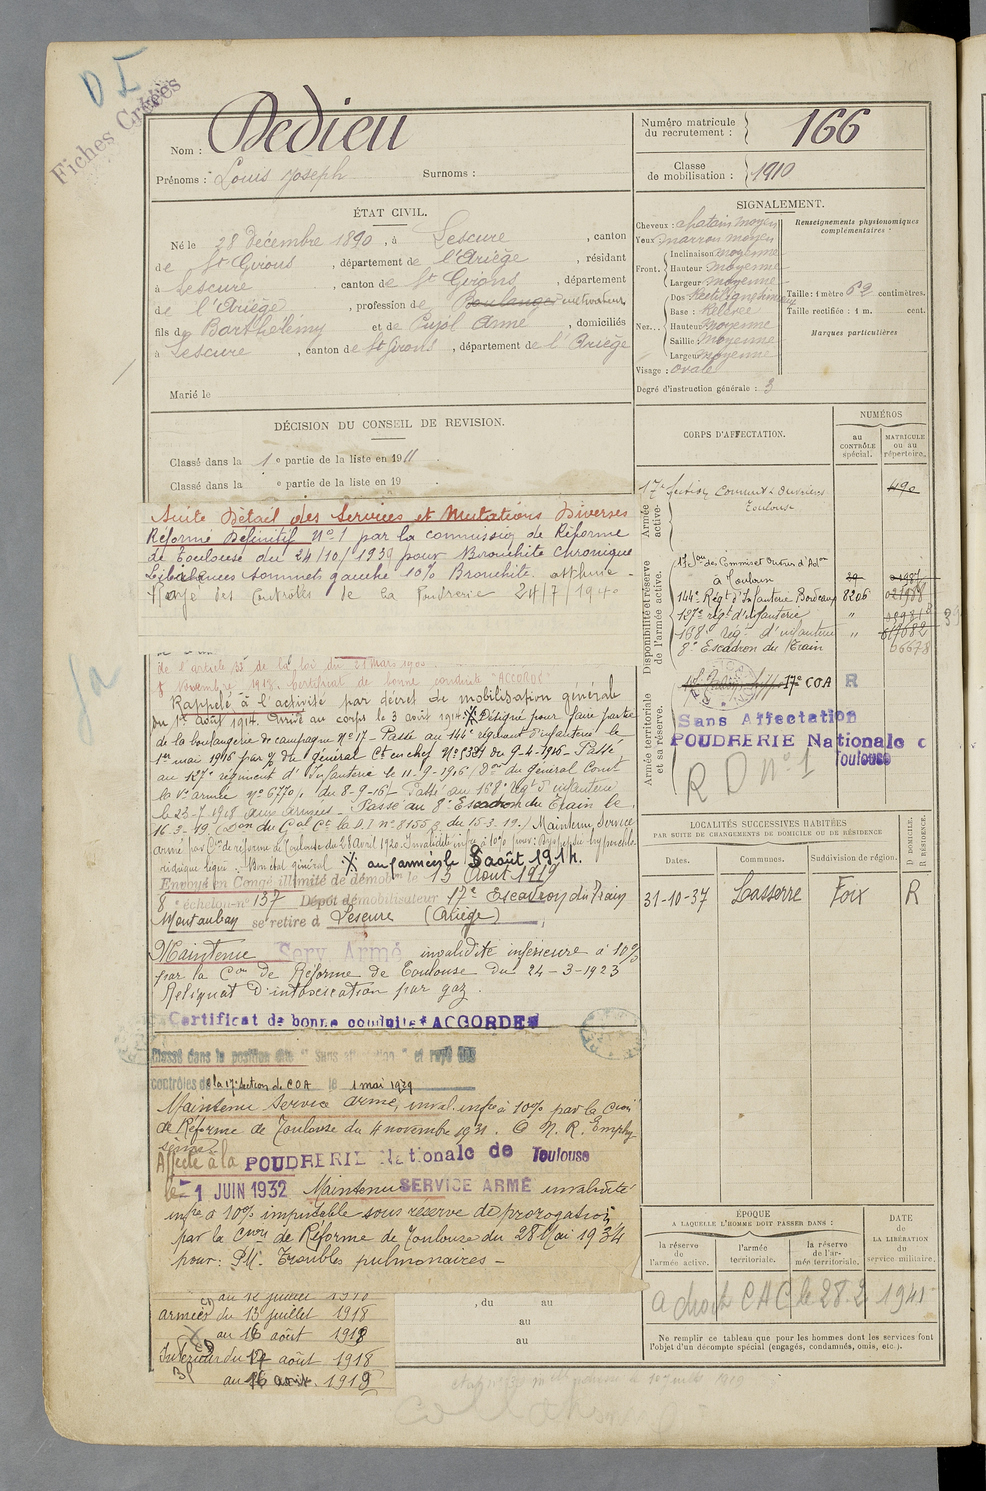 D I
Fiches Créées
Nom : Dedieu
Prénoms : Louis Joseph Surnoms :
Numéro matricule du recrutement : 166
Classe de mobilisation : 1910
ÉTAT CIVIL.
Né le 28 Décembre 1890, à Lescure, canton
de St Girons, département de l'Ariège, résidant
à Lescure, canton de St Girons, département
de l'Ariège, profession de Boulanger cultivateur
fils de Barthélémy et de Pujol Anne, domiciliés
à Lescure, canton de St Girons, département de l'Ariège
Marié le
SIGNALEMENT.
Cheveux : chatain moyen
Yeux marron moyen
Front. Inclinaison moyenne
Hauteur moyenne
Largeur moyenne
Nez... Dos Rectiligne
Base : Relevée
Hauteur moyenne
Saillie : Moyenne
Largeur moyenne
Visage : ovale
Degré d'instruction générale : 3
Renseignements physionomiques complémentaires :
Taille : 1 mètre 62 centimètres.
Taille rectifiée : 1 m. cent.
Marques particulières
DÉCISION DU CONSEIL DE REVISION.
Classé dans la 1e partie de la liste en 1911.
Classé dans la e partie de la liste en 19 .
Suite Détail des Services et Mutations Diverses
Réformé Définitif No 1 par la commission de Réforme
de Toulouse du 24/10/1939 pour Bronchite chronique
sommet gauche 10% Bronchite asthme -
Rayé des Contrôles de la Poudrerie 24/7/1940
de l'article 33 de la loi du 21 Mars 1905.
Novembre 1913. Certificat de bonne conduite "ACCORDÉ"
Rappelé à l'activité par décret de mobilisation générale
du 1er Août 1914. Arrivé au corps le 3 août 1914. Désigné pour faire partie
de la boulangerie de campagne No 17 - Passé au 144e régiment d'infanterie le
1er mai 1916 par du général Ct en chef No du 9-4-1916 - Passé
au 127e régiment d'Infanterie le 11-9-1916 / Don du Général Comt
la Ve armée No 6770/. du 8-9-16/- Passé au 168e régt d'infanterie
le 23-7-1918 aux armées. Passé au 8e Escadron du Train le
16.3.19. (Don du Gal Ct la D.I no 8155 du 15.3.19.) Maintenu Service
armé par Con de réforme de Toulouse du 28 Avril 1920. Invalidité infre à 10% pour : Dyspepsie
Bon état général aux armées le 3 août 1914.
Envoyé en Congé illimité de démobon le 13 Août 1919
8e échelon no 137 Dépôt démobilisateur 17e Escadron du Train
Montauban se retire à Lescure (Ariège)
Maintenu Serv Armé invalidité inférieure à 10%
par la Con de Réforme de Toulouse du 24-3-1923
Reliquat d'intoxication par gaz.
Certificat de bonne conduite ACCORDÉ
Classé dans la position dite " Sans affectation " et rayé des
contrôles de la 17e Section de COA le 1 mai 1929
Maintenu Service armé, inval. infre à 10% par la Con
de Réforme de Toulouse du 4 novembre 1931.
Affecté à la POUDRERIE Nationale de Toulouse
le - 1 JUIN 1932 Maintenu SERVICE ARMÉ invalidité
infre à 10% imputable sous réserve de prorogation
par la Con de Réforme de Toulouse du 28 Mai 1934
pour : Troubles pulmonaires -
armées du 13 juillet 1918
au 16 août 1918
Intérieur du 17 août 1918
CORPS D'AFFECTATION.
NUMÉROS
au CONTRÔLE spécial.
MATRICULE ou au répertoire.
Armée active.
17e Section Commis & Ouvriers
Toulouse
Disponibilité et réserve de l'armée active.
à Toulouse
144e Régt d'Infanterie Bordeaux 8206
127e régt d'infanterie "
168e régt d'infanterie "
8e Escadron du Train
Armée territoriale et sa réserve.
17e COA R
Sans Affectation
POUDRERIE Nationale
Toulouse
R D no 1
LOCALITÉS SUCCESSIVES HABITÉES
PAR SUITE DE CHANGEMENTS DE DOMICILE OU DE RÉSIDENCE
Dates. Communes. Subdivision de région. D DOMICILE. R RÉSIDENCE.
31-10-37 Lasserre Foix R
ÉPOQUE
A LAQUELLE L'HOMME DOIT PASSER DANS :
la réserve de l'armée active.
l'armée territoriale.
la réserve de l'armée territoriale.
DATE de LA LIBÉRATION du service militaire.
a droit CAC le 28.2 1941
, du au
au
au
Ne remplir ce tableau que pour les hommes dont les services font
l'objet d'un décompte spécial (engagés, condamnés, omis, etc.).